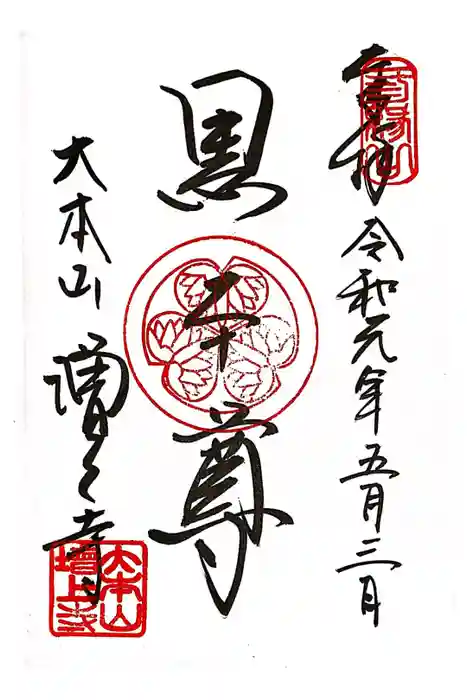 奉拝 令和元年五月三日
黒本尊
大本山 増上寺
大本山
増上寺